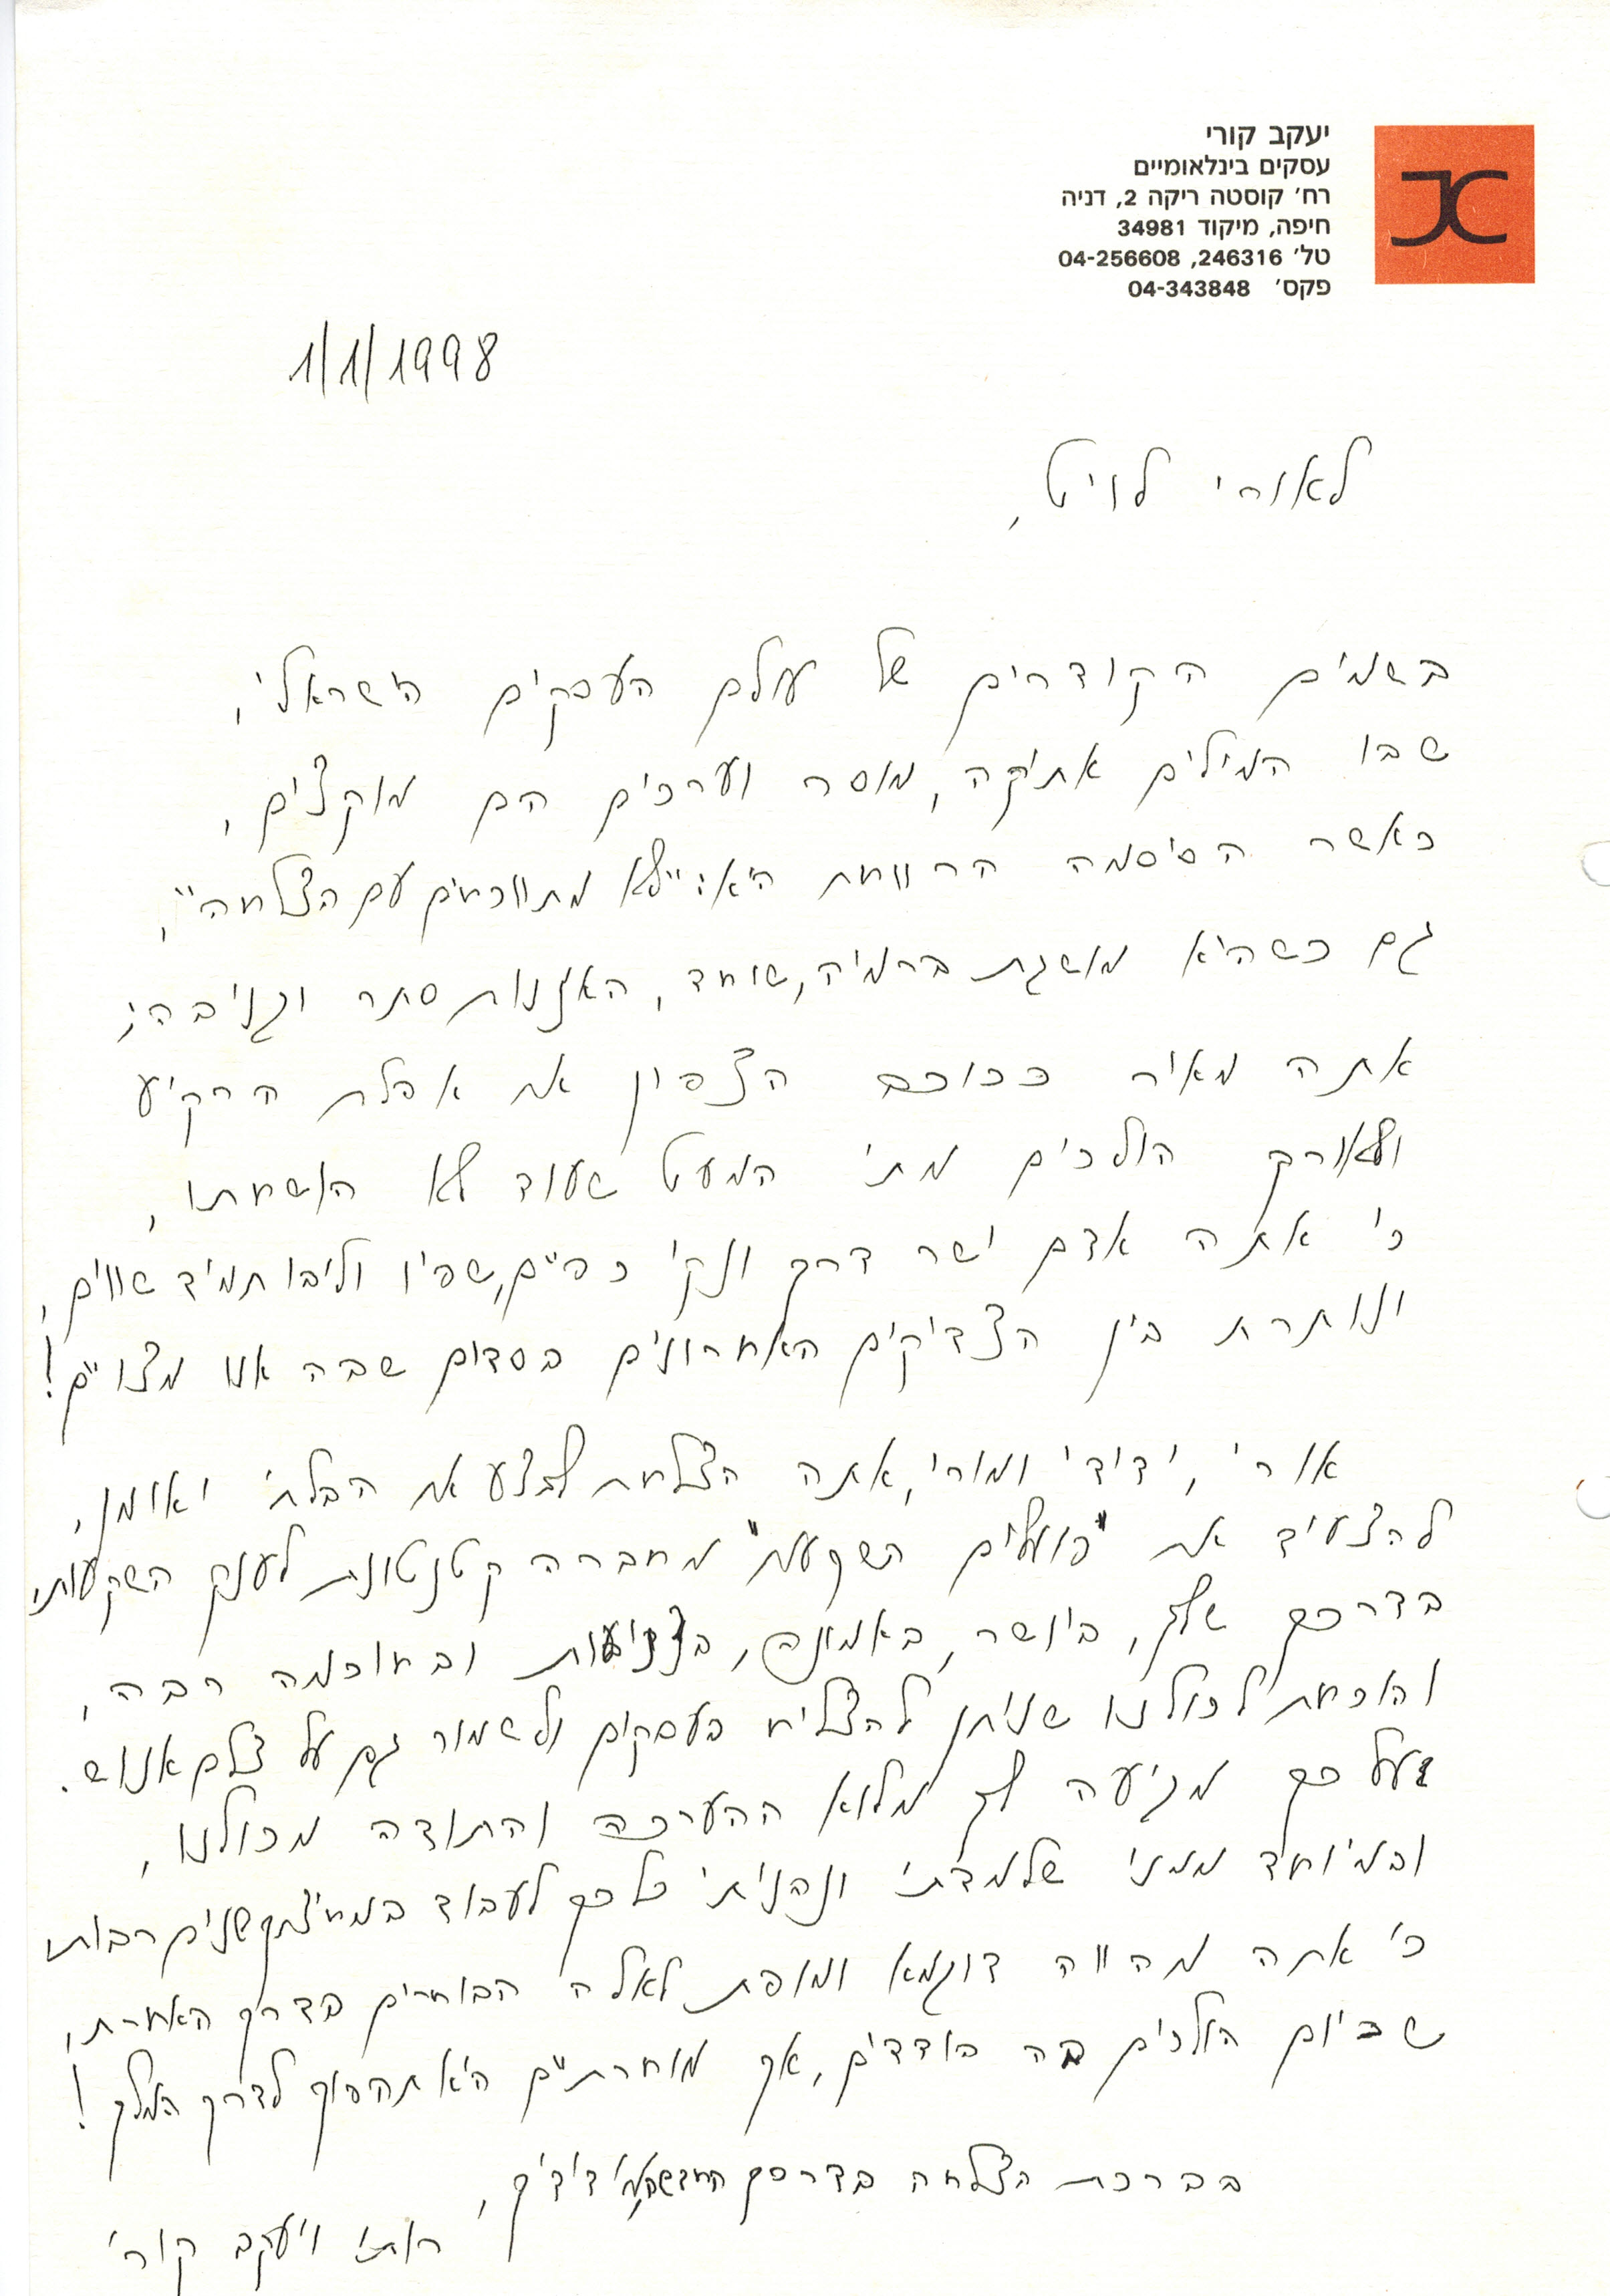 יעקב קורי
עסקים בינלאומיים
רח׳ קוסטה ריקה 2, דניה
חיפה, מיקוד 34981
טל׳ 246316, 04-256608
פקס׳ 04-343848
JC
1/1/1998
לאורי לויט,
בשמים הקודרים של עולם העסקים הישראלי,
שבו המילים אתיקה, מוסר וערכים הם מוקצים,
כאשר הסיסמה הרווחת היא: "לא מתווכחים עם הצלחה",
גם כשהיא מושגת ברמיה, שוחד, האזנות סתר וגניבה;
אתה מאיר ככוכב הצפון את אפלת הרקיע
ולאורך הולכים מתי המעט שעוד לא הושחתו,
כי אתה אדם ישר דרך ונקי כפיים, שפיו וליבו תמיד שווים,
ונותרת בין הצדיקים האחרונים בסדום שבה אנו מצויים!
אורי, ידידי ומורי, אתה הצלחת לבצע את הבלתי יאומן,
להצעיד את "פועלים השקעות" מחברה קטנטונת לענק השקעות,
בדרכך שלך, ביושר, באמונה, בצניעות ובחוכמה רבה,
והוכחת לכולנו שניתן להצליח בעסקים ולשמור גם על צלם אנוש.
על כך מגיעה לך מלוא ההערכה והתודה מכולנו,
ובמיוחד ממני שלמדתי ונהניתי כל כך לעבוד במחיצתך שנים רבות,
כי אתה מהווה דוגמא ומופת לאלה הבוחרים בדרך האחרת,
שביום הולכים בה בודדים, אך מוחרתיים היא תהפוך לדרך המלך!
בברכת הצלחה בדרכך החדשה, ידידיך,
רותי ויעקב קורי